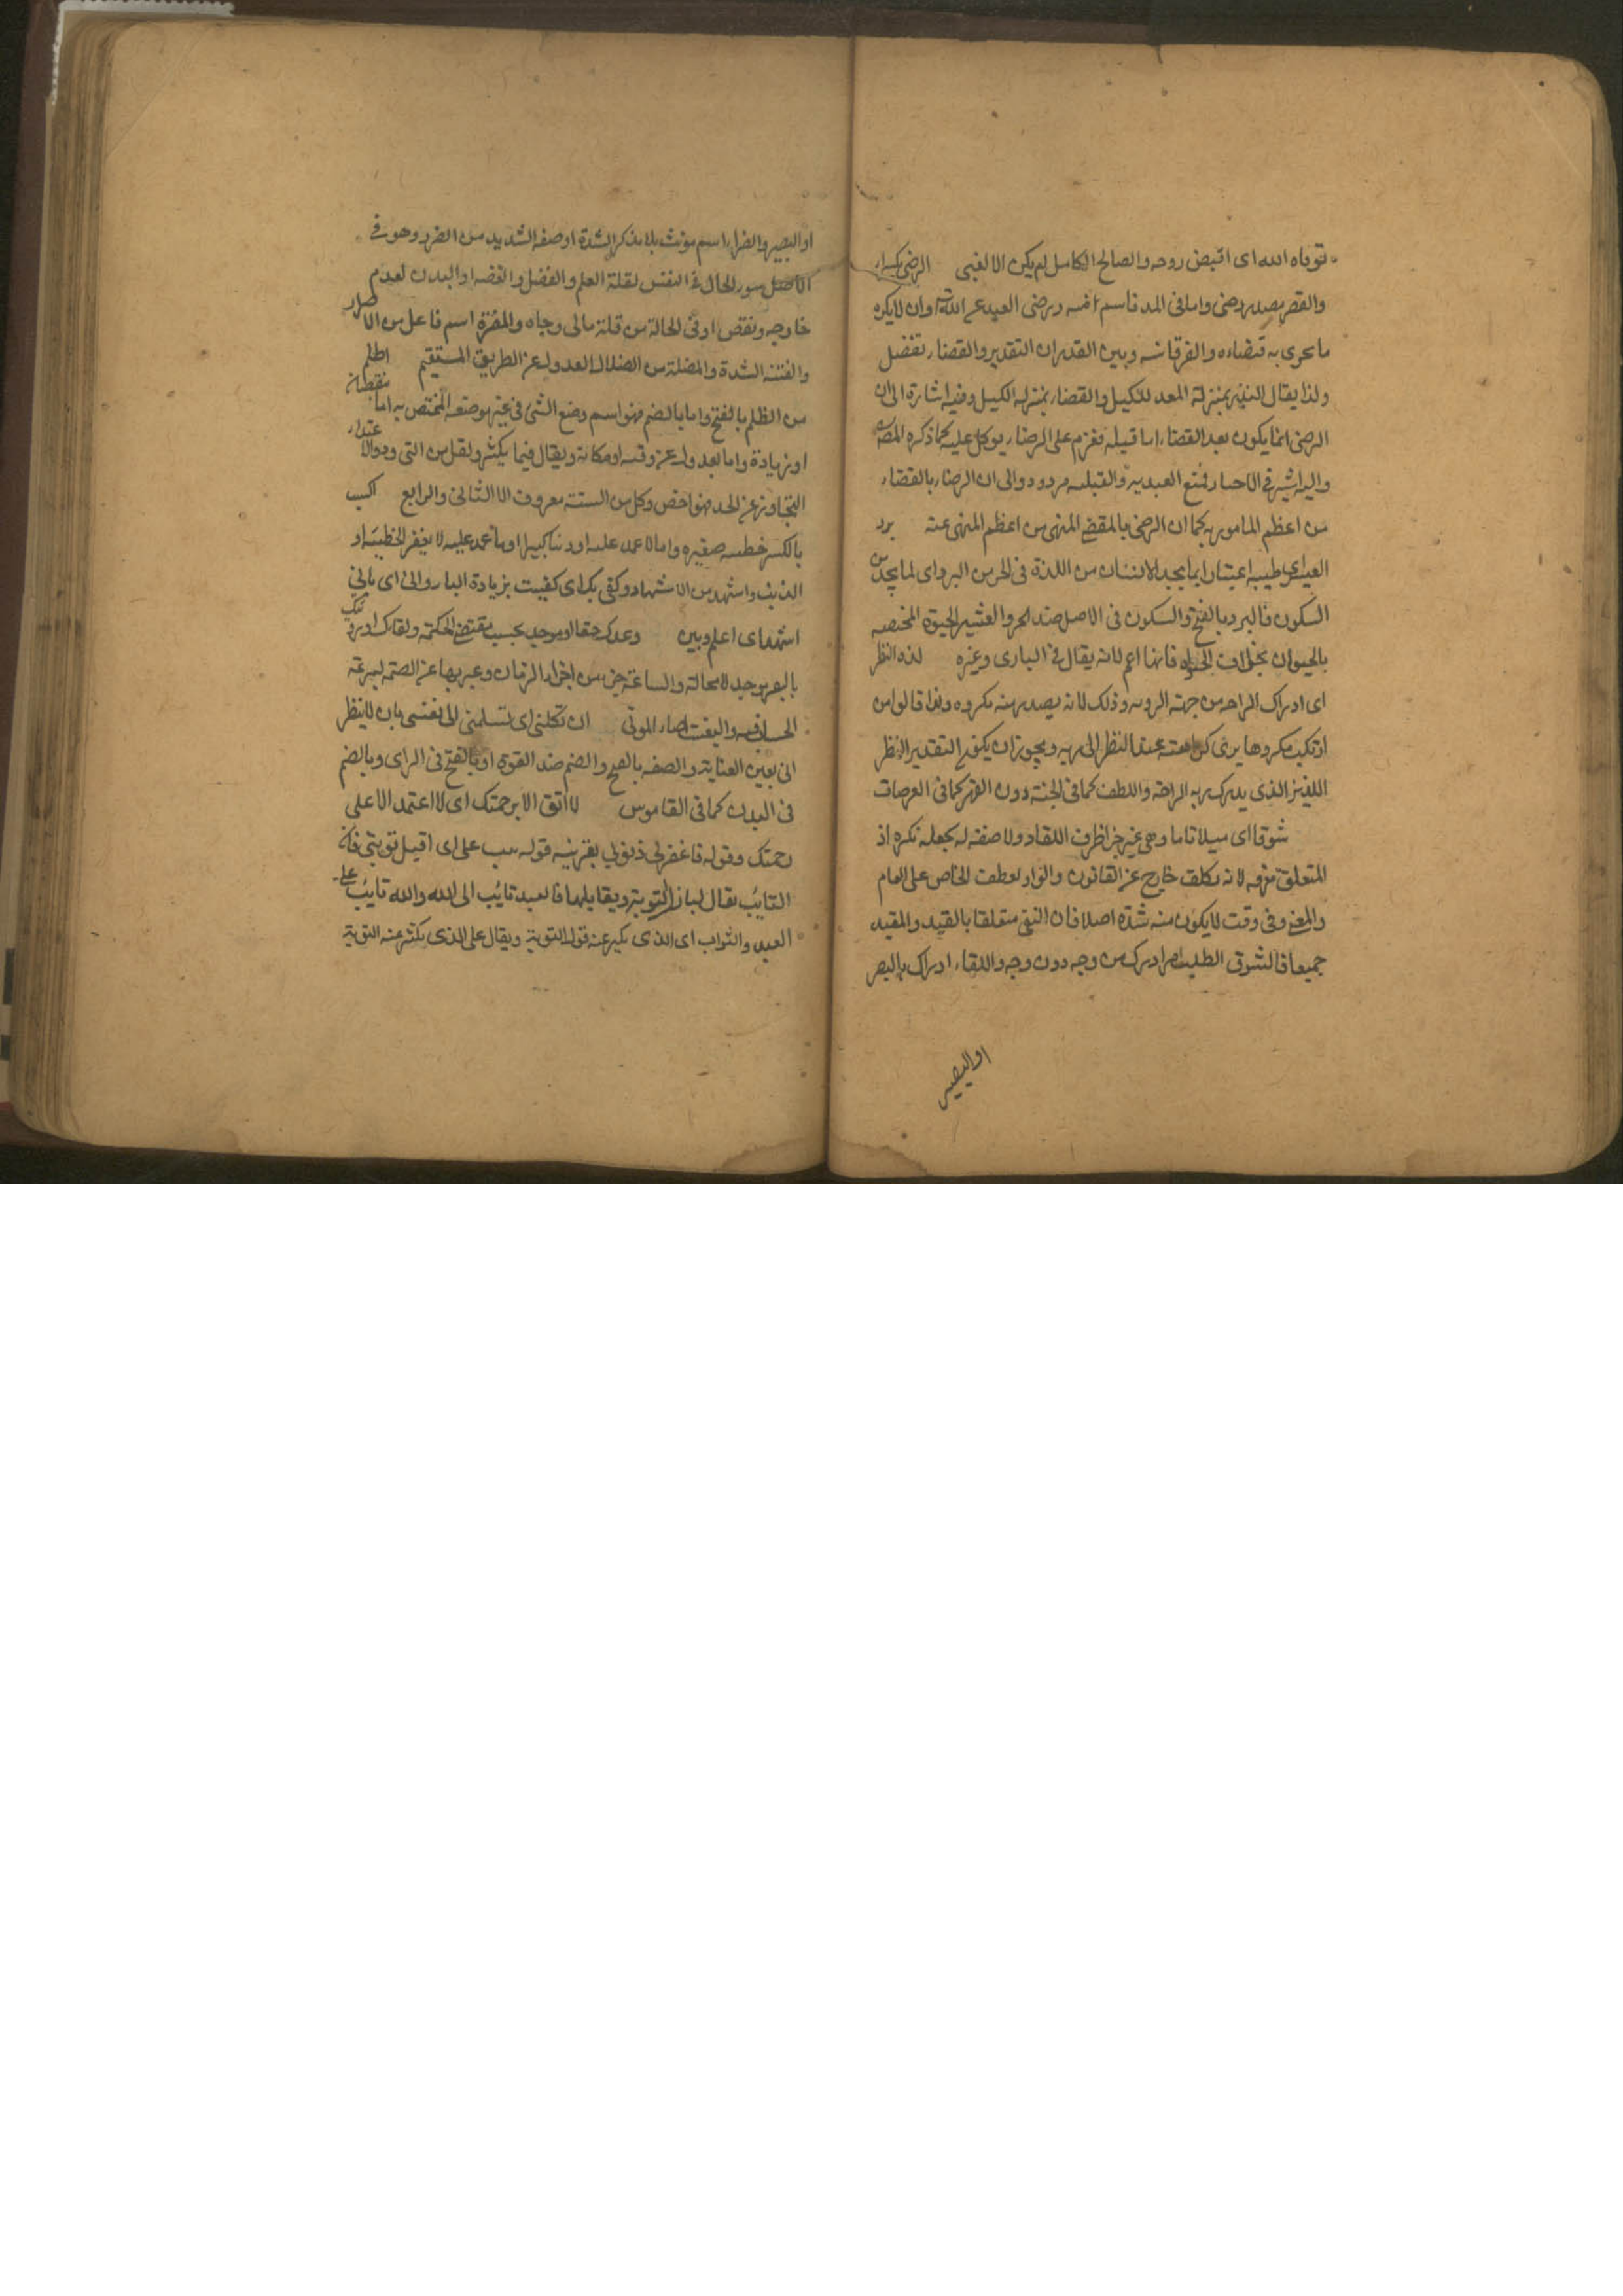 توفاه الله اى اقبض روحه والصالح الكامل لم يكن الا لغبى الرضى بكسر الراء
والقصر مصدر رضى واما فى المد فاسم منه ورضى العبد عن الله ان لا يكره
ما يجرى به قضاءه والفرقانه وبين القدر ان التقدير والقضاء تفضل
ولذا يقال بمنزلة المعد للكيل والقضاء بمنزلة الكيل وفيه اشارة الى ان
الرضى انما يكون بعد القضاء اما قبله فعزم على الرضاء يوكل عليه كما ذكره
واليه اشير فى الاحياء العبدية والقبلية مردود والى ان الرضاء بالقضاء
من اعظم المامور به كما ان الرضى بالمقضى المنهى من اعظم المنهى عنه برد
العيش اى طيبه اعتبارا بما يجد الانسان من اللذة فى الحر من البرد اى لما يجد من
السكون فالبرد بالفتح والسكون فى الاصل ضد الحر والعيش الحيوة المختصه
بالحيوان بخلاف الحيوة فانها اعم لانه يقال فى البارى وغيره لذه النظر
اى ادراك الراحة من جهة الرويه وذلك لانه يصدر منه مكروه ولذا قالوا من
ارتكب مكروها يرى كراهته عند النظر الى ربه ويجوز ان يكون التقدير النظر
اللذيذ الذى يدرك به الراحة واللطف كما فى الجنة دون القهر كما فى العرصات
شوقا اى ميلا تاما وهى غير ظرف اللقاء ولا صفه له يجعله نكره اذ
المتعلق معرفه لانه تكلف خارج عن القانون والواو لعطف الخاص على العام
والمعنى وفى وقت لا يكون منه شدة اصلا فان النفى متعلقا بالقيد والمقيد
جميعا فالشوق الطلب ادرك من وجه دون وجه واللقاء ادراك بالبصر
او البصيره
او البصيره والضراء اسم مؤنث بلا مذكر الشدة او صفه الشديد من الضر وهو فى
الاصل سوء الحال فى النفس لقلة العلم والفضل والعفه او البدن لعدم
خارجه ونقص او فى الحالة من قلة مالى وجاه والمضرة اسم فاعل من الاضرار
والفتنه الشدة والمضلة من الضلال العدول عن الطريق المستقيم اظلم
من الظلم بالفتح واما بالضم فهو اسم وضع الشئ فى غير موضعه المختص به اما بنقصان
او زيادة واما بعدول عن وقته او مكانه ويقال فيما يكثر ويقل من التجاوز والاعتداء
التجاوز عن الحد فهو اخص وكل من الستة معروف الا الثانى والرابع اكسب
بالكسر خطيئه صغيره واما لا عمد عليه او ذنبا كبيرا او ما عمد عليه لا يغفر الخطيئه او
الذنب واشهد من الاشهاد وكفى بك اى كفيت بزيادة الباء والى اى بانى
اشهد اى اعلم وبين وعدك حقا او موجد بحسب مقتضى الحكمة ولقاك او رويتك
بالبصر يوجد لا محالة والساعة جزء من اجزاء الزمان وعبر بها عن القيمة لسرعة
الحساب فيه والبعث احياء الموتى ان تكلنى اى تسلمنى الى نفسى بان لا ينظر
الى بعين العناية والضعف بالفتح والضم ضد القوة او بالفتح فى الراى وبالضم
فى البدن كما فى القاموس لا اثق الا برحمتك اى لا اعتمد الا على
رحمتك وقوله فاغفر لى ذنوبى بقرينه قوله وتب على اى اقبل توبتى فانه
التائب يقال لباذل التوبة ويقابلها فالعبد تائب الى الله والله تايب على
العبد والتواب اى الذى يكثر عنه قوله التوبة ويقال على الذى يكثر عنه التوبة